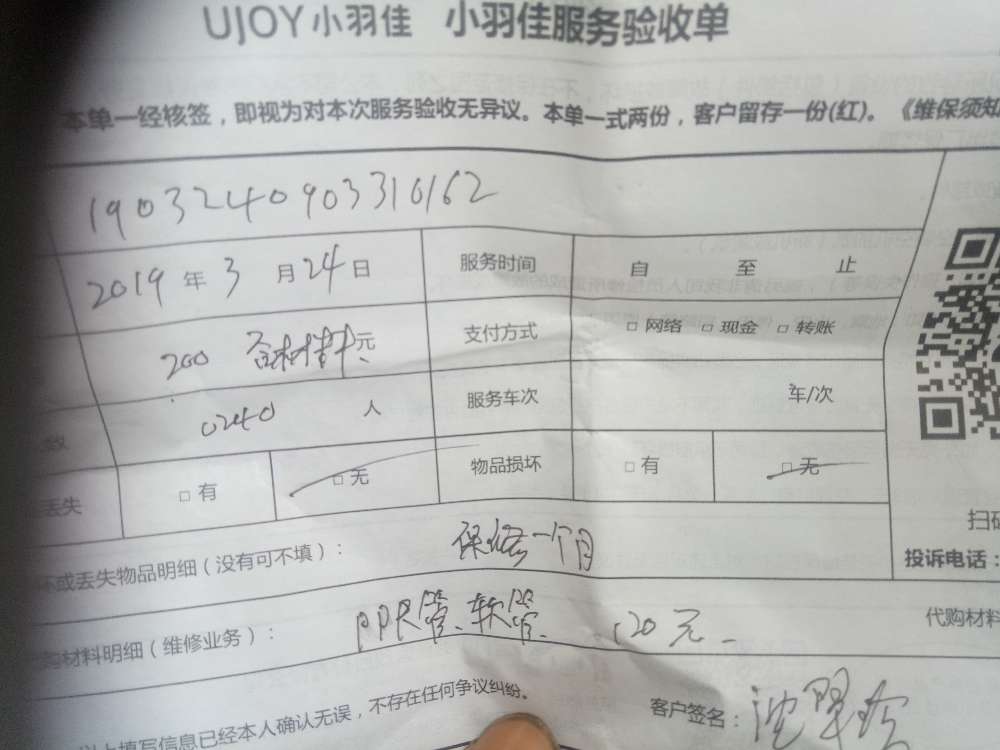 UJOY小羽佳 小羽佳服务验收单
本单一经核签，即视为对本次服务验收无异议。本单一式两份，客户留存一份(红)。《维保须知
1903240903310162
2019 年 3 月 24 日 服务时间 自 至 止
200 含材料 元 支付方式 □ 网络 □ 现金 □ 转账
数 0240 人 服务车次 车/次
丢失 □ 有 □ 无 物品损坏 □ 有 □ 无
扫
坏或丢失物品明细（没有可不填）： 保修一个月 投诉电话：
购材料明细（维修业务）： PPR管、软管、 120元 代购材料
以上填写信息已经本人确认无误，不存在任何争议纠纷。 客户签名：沈